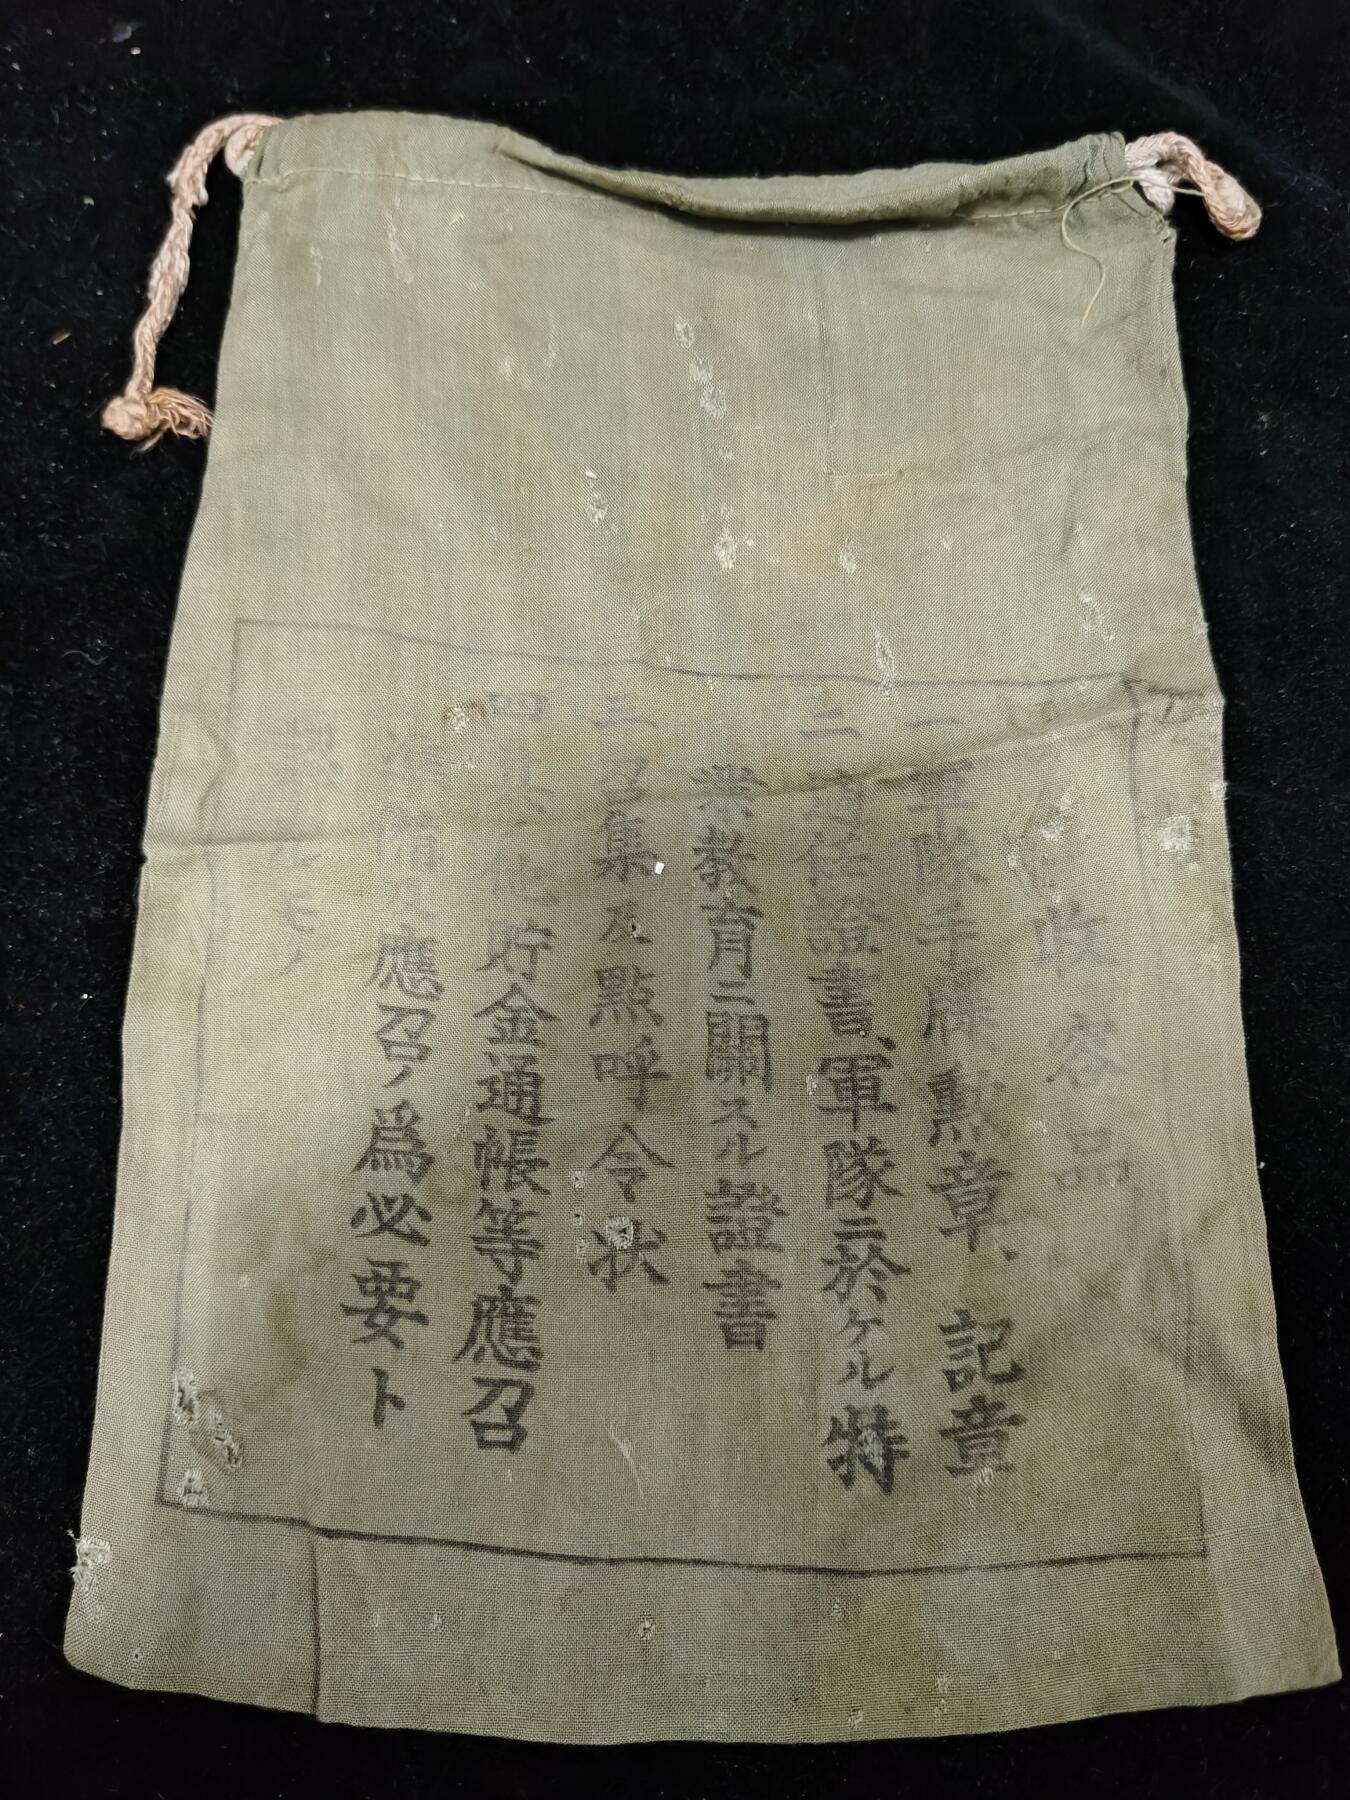 收容品
一 軍隊手牒、勲章、記章
二 適任證書、軍隊ニ於ケル特
業教育ニ關スル證書
三 召集及點呼令状
四 其 貯金通帳等應召
準備又應召ノ爲必要ト
認ムルモノ